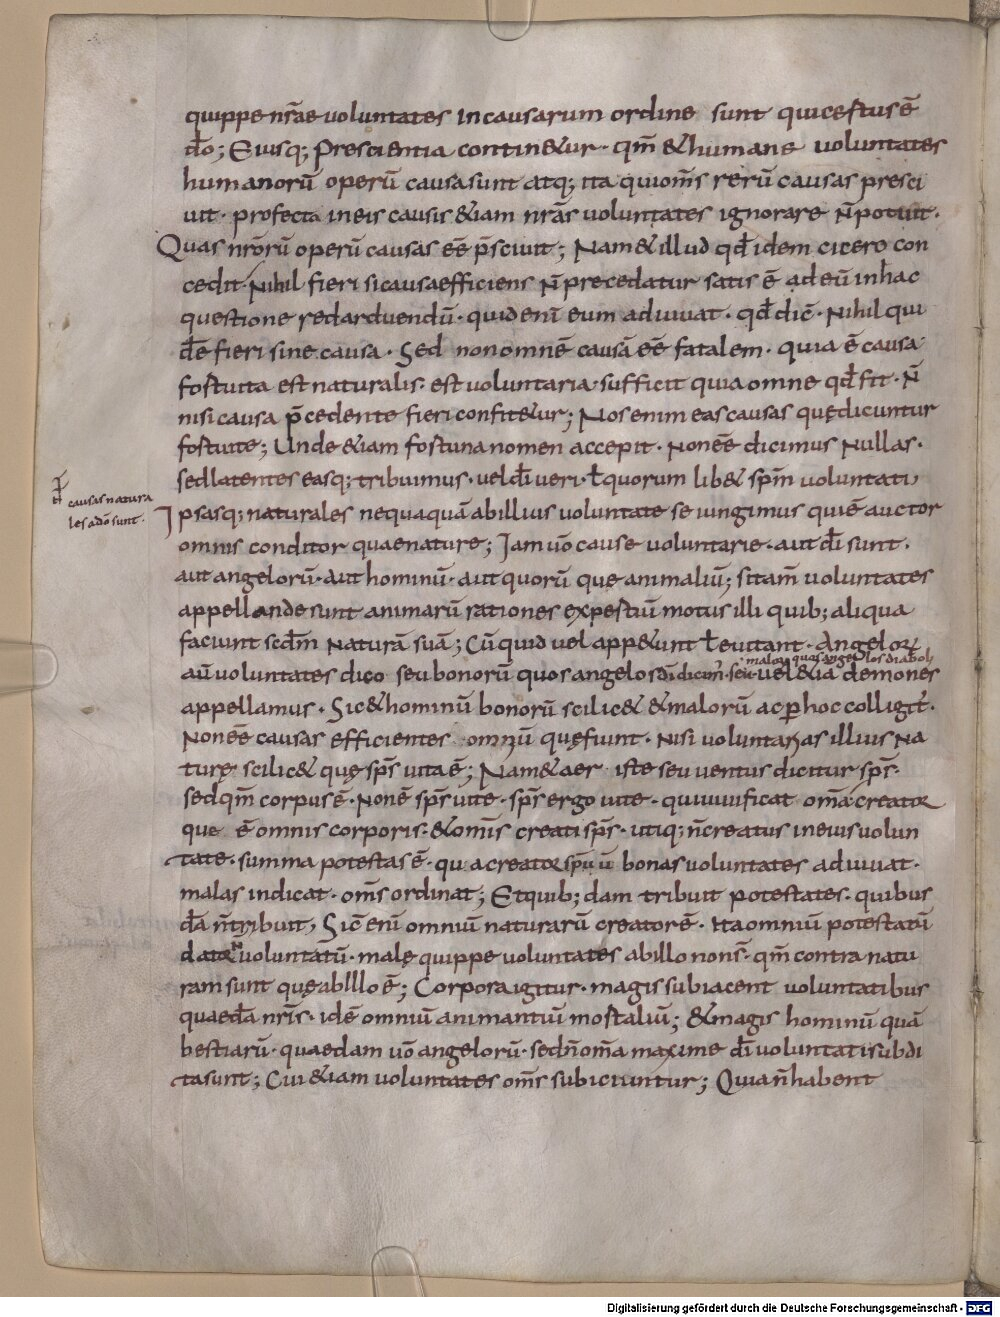 quippe nrāe voluntates in causarum ordine sunt qui cestus ē
dō; Eiusq; prescientia contin&ur· qm̄ & humane voluntates
humanorū operū causa sunt atq; ita qui om̄s rerū causas presci
uit· profecta in eis causis &iam nrās voluntates ignorare n̄ potuit·
Quas nr̄orū operū causas eē p̄sciuit; Nam & illud qd̄ idem cicero con
cedit· Nihil fieri si causa efficiens n̄ precedatur satis ē ad eū in hac
questione redarduendū· quid enī eum adiuuat· qd̄ dic̄· Nihil qui
dē fieri sine causa· Sed non omnē causā eē fatalem· quia ē causa
fostuita est naturalis· est voluntaria· sufficit quia omne qd̄ fit· n̄
nisi causa p̄cedente fieri confit&ur; Nos enim eas causas quę dicuntur
fostuite; Unde &iam fostuna nomen accepit· Non eē dicimus Nullas·
sed latentes easq; tribuimus· vel dī veri· ł quorum lib& spm̄ voluntati,
causas natura
les ad ō sunt·
Ipsasq; naturales nequaquā ab illius voluntate seiungimus qui ē auctor
omnis conditor quae nature; Iam ūo cause voluntarie· aut dī sunt·
aut angelorū· aut hominū· aut quorū que animaliū; si tam̄ voluntates
appellande sunt animarū rationes expestiū motus illi quib; aliqua
faciunt scdm̄ Naturā suā; Cū quid vel app&unt ł euitant· Angeloꝝ
maloꝝ quos angelos diaboli
aū voluntates dico seu bonorū quos angelos dī dicim̄· seu· vel &ia demones
appellamus· Sic & hominū bonorū scilic& & malorū ac p hoc colligit̄·
Non eē causas efficientes omniū quę fiunt· Nisi voluntarias illius Na
turę scilic& quę sps̄ uita ē; Nam & aer iste seu ventus dicitur sps̄·
sed qm̄ corpus ē· Non ē sps̄ uite· sps̄ ergo uite· qui uiuificat om̄a· creator
que ē omnis corporis· & om̄is creati sps̄· utiq; n̄ creatus in eius volun
tate· summa potestas ē· qua creatoꝝ spū ū bonas voluntates adiuuat·
malas indicat· om̄s ordinat; Et quib; dam tribuit potestates· quibus
dā n̄ tribuit, Sic̄ enī omniū naturarū creator ē· Ita omniū potestatū
datoꝝ n̄ voluntatū· malę quippe voluntates ab illo non s̄· qm̄ contra natu
ram sunt quę ab lllo ē; Corpora igitur· magis subiacent voluntatibus
quaedā nrīs· id ē omniū animantiū mostaliū; & magis hominū quā
bestiarū· quaedam ūo angelorū· sed n̄ om̄a maxime dī voluntati subdi
ta sunt; Cui &iam voluntates om̄s subiciuntur; Quia n̄ habent
Digitalisierung gefördert durch die Deutsche Forschungsgemeinschaft - DFG